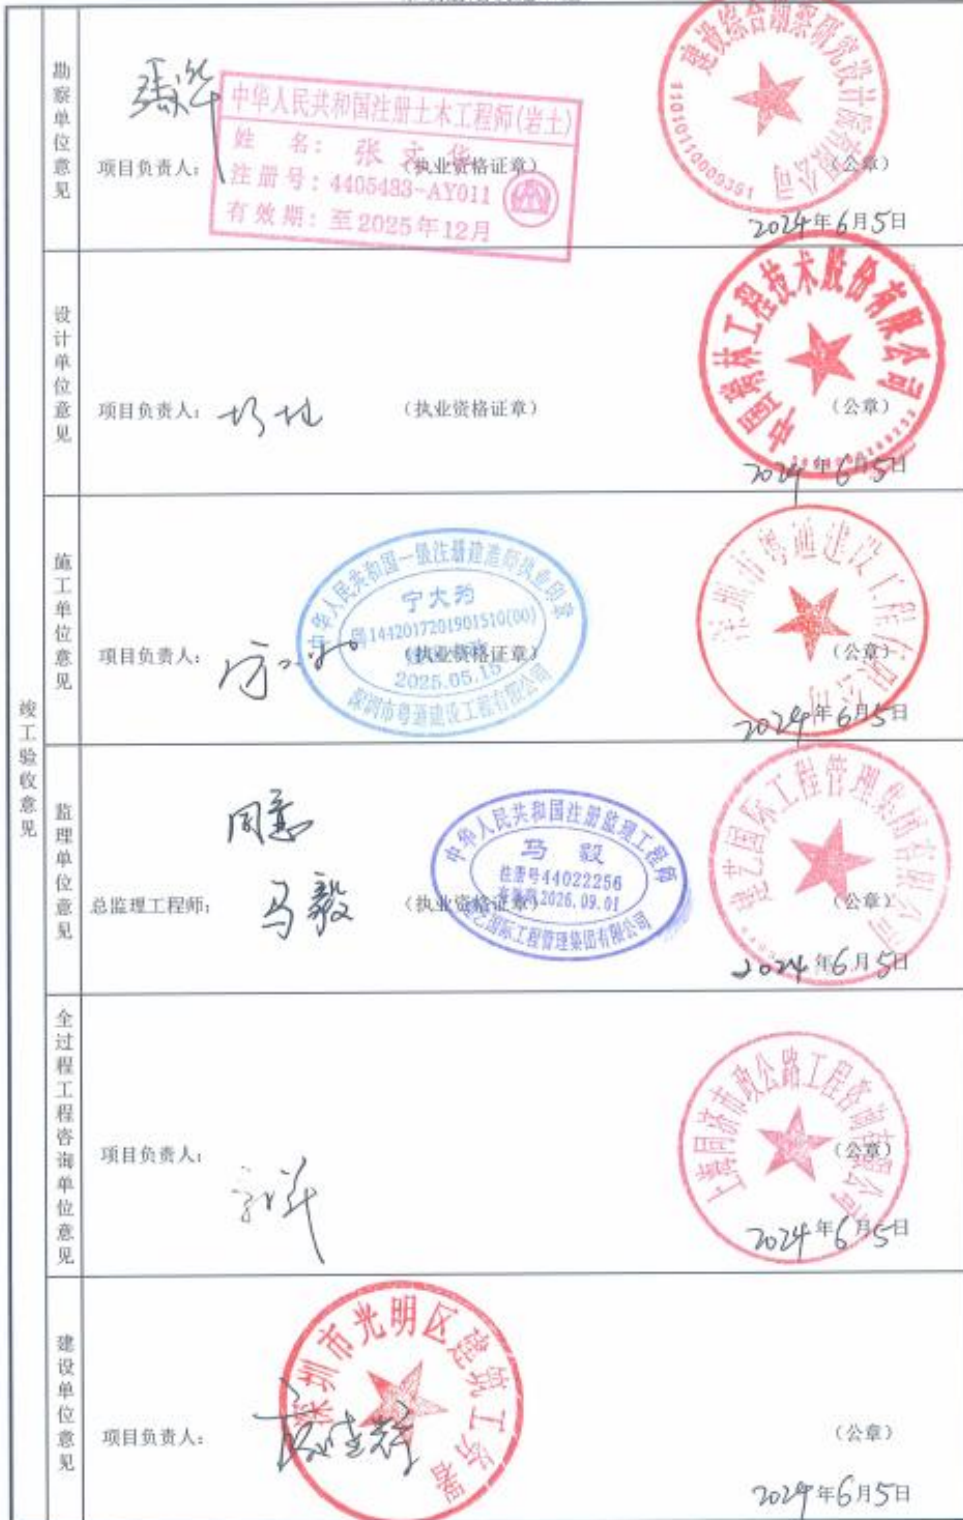 竣工验收意见
勘察单位意见
项目负责人:
(执业资格证章)
中华人民共和国注册土木工程师(岩土)
姓 名: 张文华
注册号: 4405483-AY011
有效期: 至2025年12月
建设综合勘察研究设计院有限公司
11010110009351
(公章)
2024年6月5日
设计单位意见
项目负责人:
(执业资格证章)
中国瑞林工程技术股份有限公司
(公章)
2024年6月5日
施工单位意见
项目负责人:
(执业资格证章)
中华人民共和国一级注册建造师执业印章
宁大为
粤1442017201901510(00)
2025.05.15
深圳市粤通建设工程有限公司
深圳市粤通建设工程有限公司
(公章)
2024年6月5日
监理单位意见
同意
总监理工程师:
马毅
(执业资格证章)
中华人民共和国注册监理工程师
马 毅
注册号44022256
有效期2026.09.01
建艺国际工程管理集团有限公司
建艺国际工程管理集团有限公司
(公章)
2024年6月5日
全过程工程咨询单位意见
项目负责人:
上海同济市政公路工程咨询有限公司
(公章)
2024年6月5日
建设单位意见
项目负责人:
深圳市光明区建筑工务署
(公章)
2024年6月5日